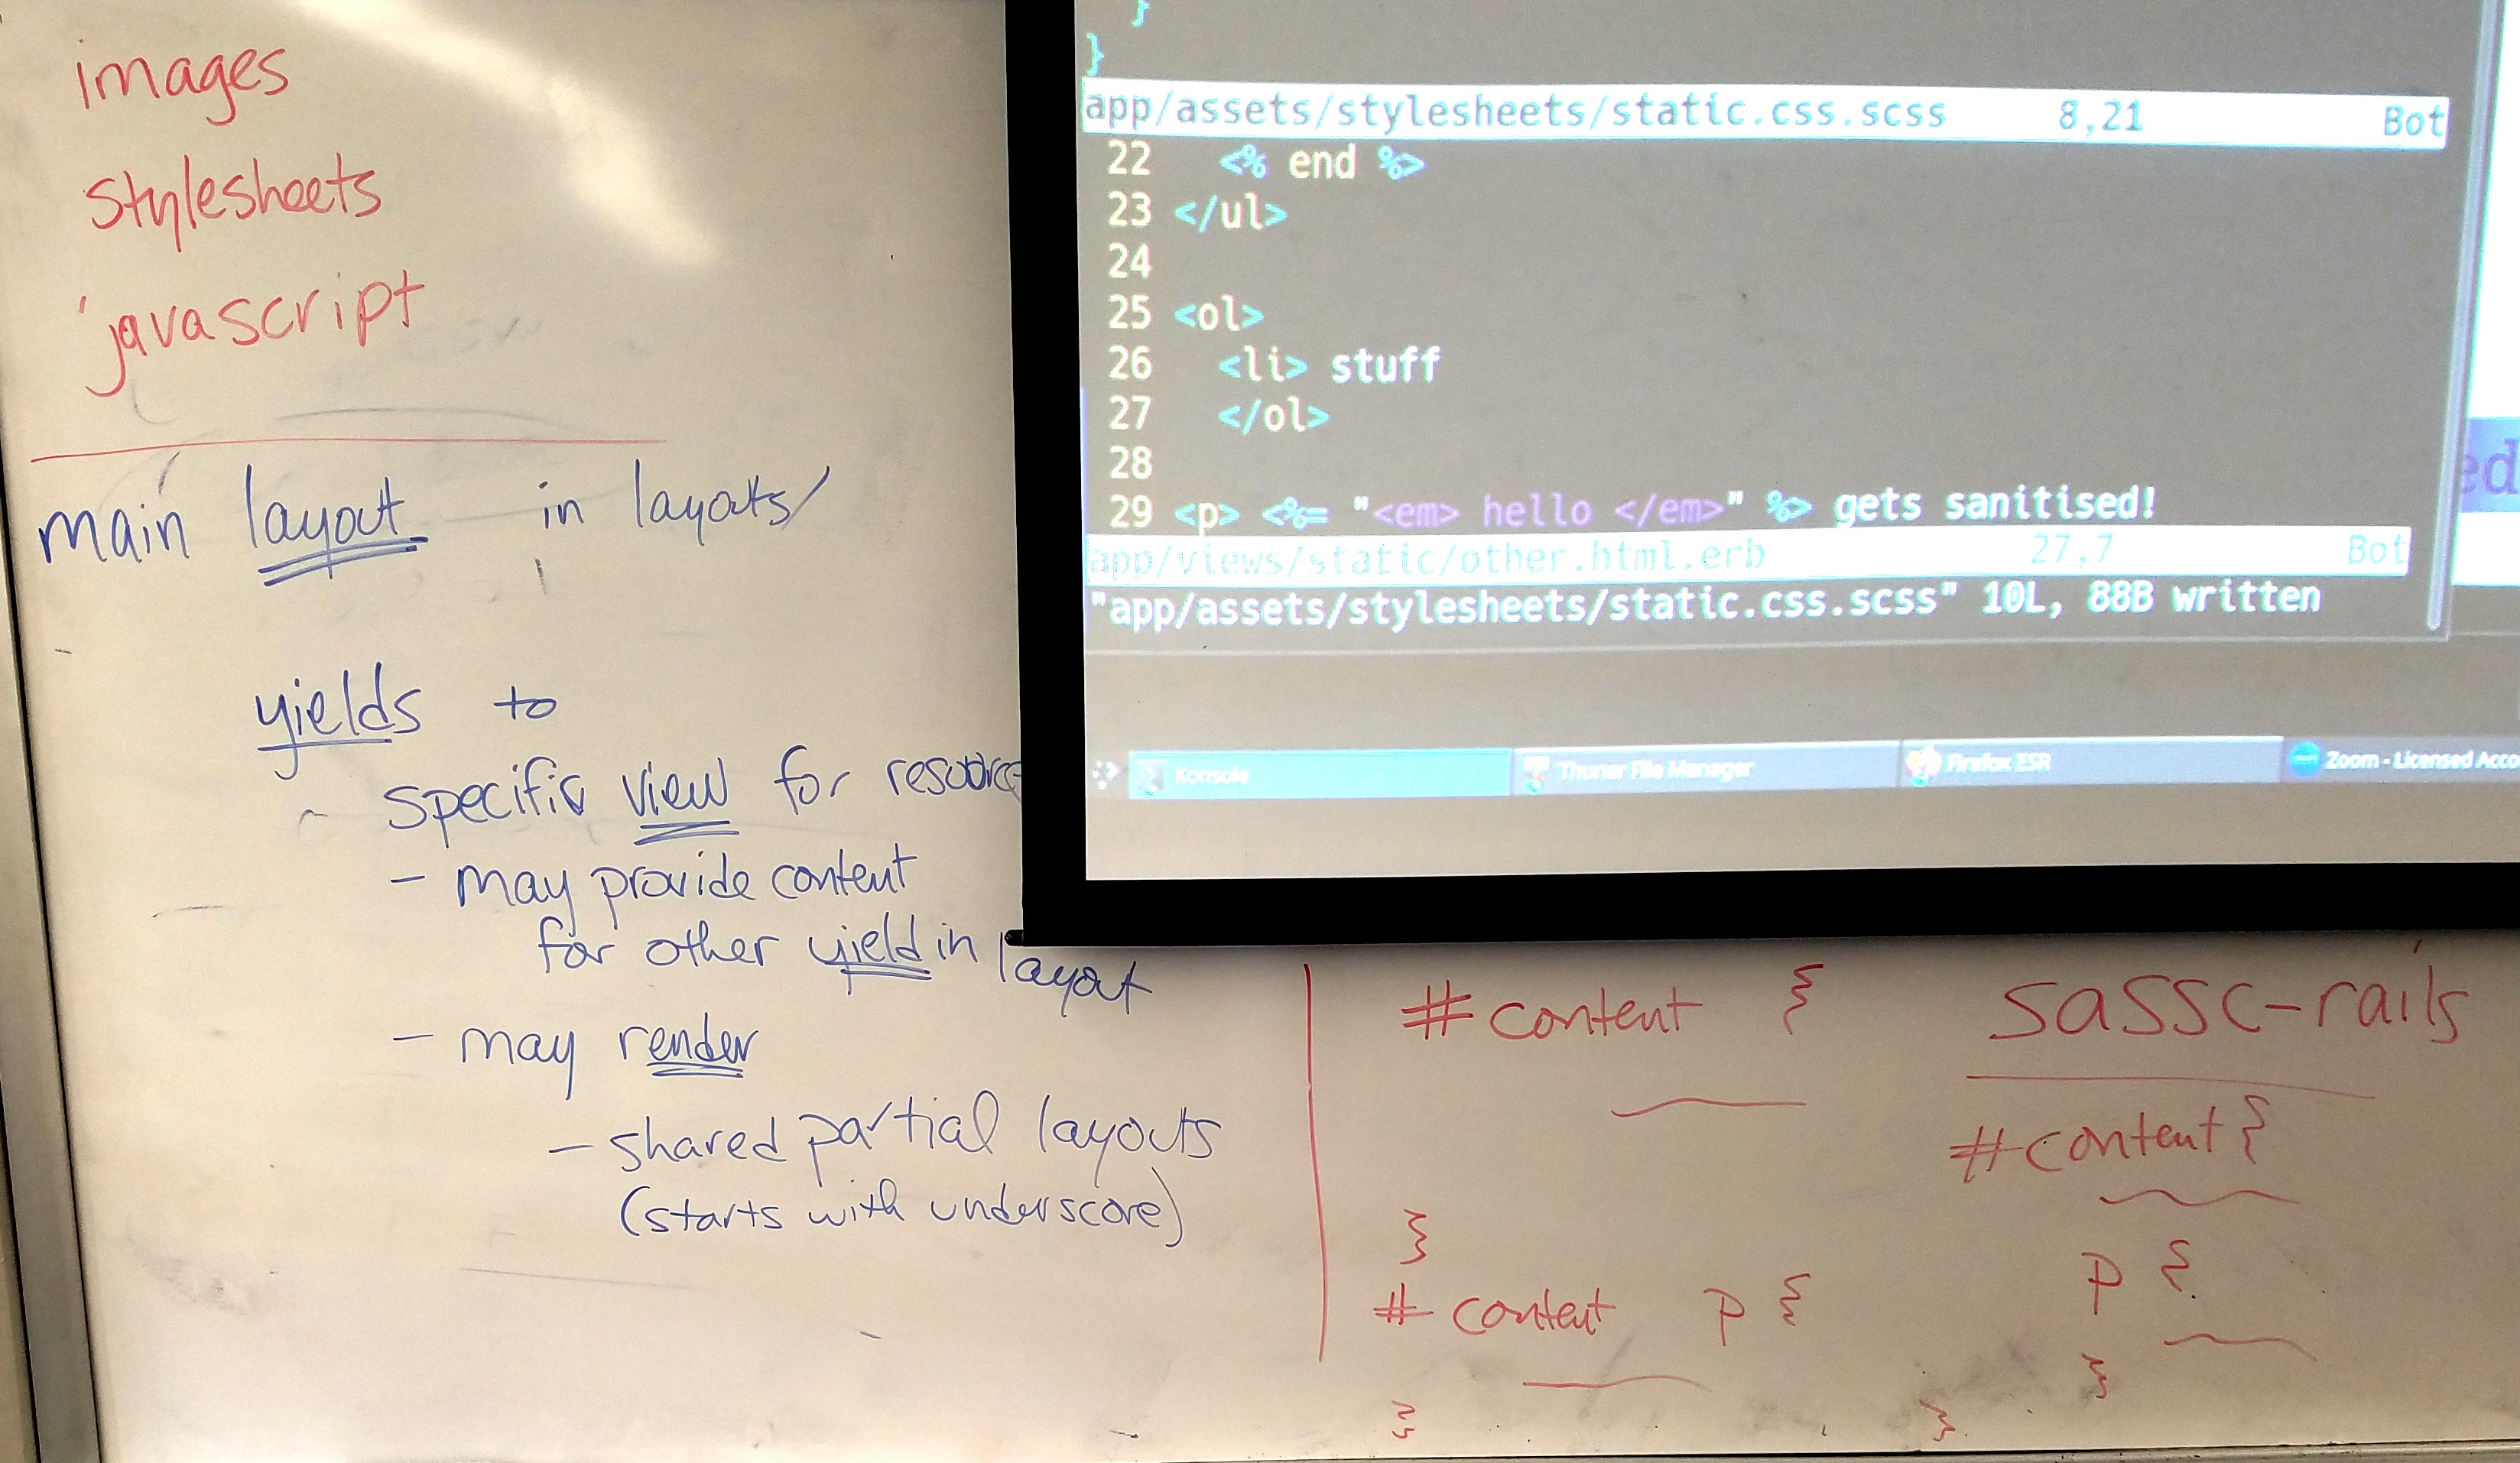 images
stylesheets
javascript
main layout in layouts/
yields to
specific view for resource
- may provide content
for other yield in layout
- may render
- shared partial layouts
(starts with underscore)
}
}
app/assets/stylesheets/static.css.scss 8,21 Bot
22 <% end %>
23 </ul>
24
25 <ol>
26 <li> stuff
27 </ol>
28
29 <p> <%= "<em> hello </em>" %> gets sanitised!
app/views/static/other.html.erb 27,7 Bot
"app/assets/stylesheets/static.css.scss" 10L, 88B written
ed
Konsole Thunar File Manager Firefox ESR Zoom - Licensed Acco
#content {
}
#content p {
}
sassc-rails
#content {
p {
}
}